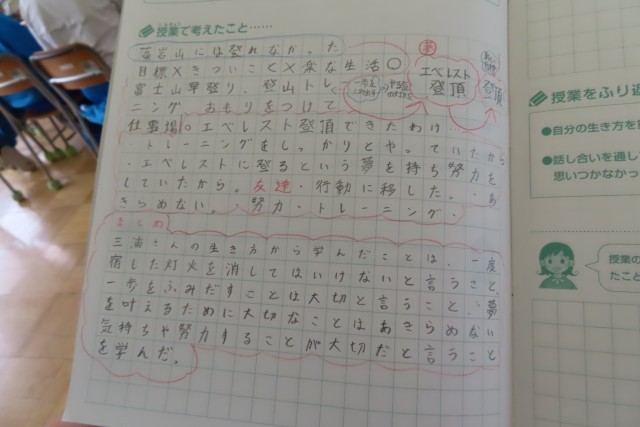 授業で考えたこと……
藻岩山には登れなかった
目標×きついこと×楽な生活〇
富士山早登り、登山トレ
ニング おもりをつけて
夢
エベレスト
登頂
登頂
仕事場。エベレスト登頂できたわけ…
・トレーニングをしっかりとやっていたから
・エベレストに登るという夢を持ち努力を
していたから。友達・行動に移した。・あ
きらめない。・努力・トレーニング・
まとめ
三浦さんの生き方から学んだことは、一度
宿した灯火を消してはいけないと言うこと、
一歩をふみだすことは大切と言うこと、夢
を叶えるために大切なことはあきらめない
気持ちや努力することが大切だと言うこと
を学んだ。
授業をふり返
●自分の生き方を
●話し合いを通し
思いつかなかっ
授業の
たこと